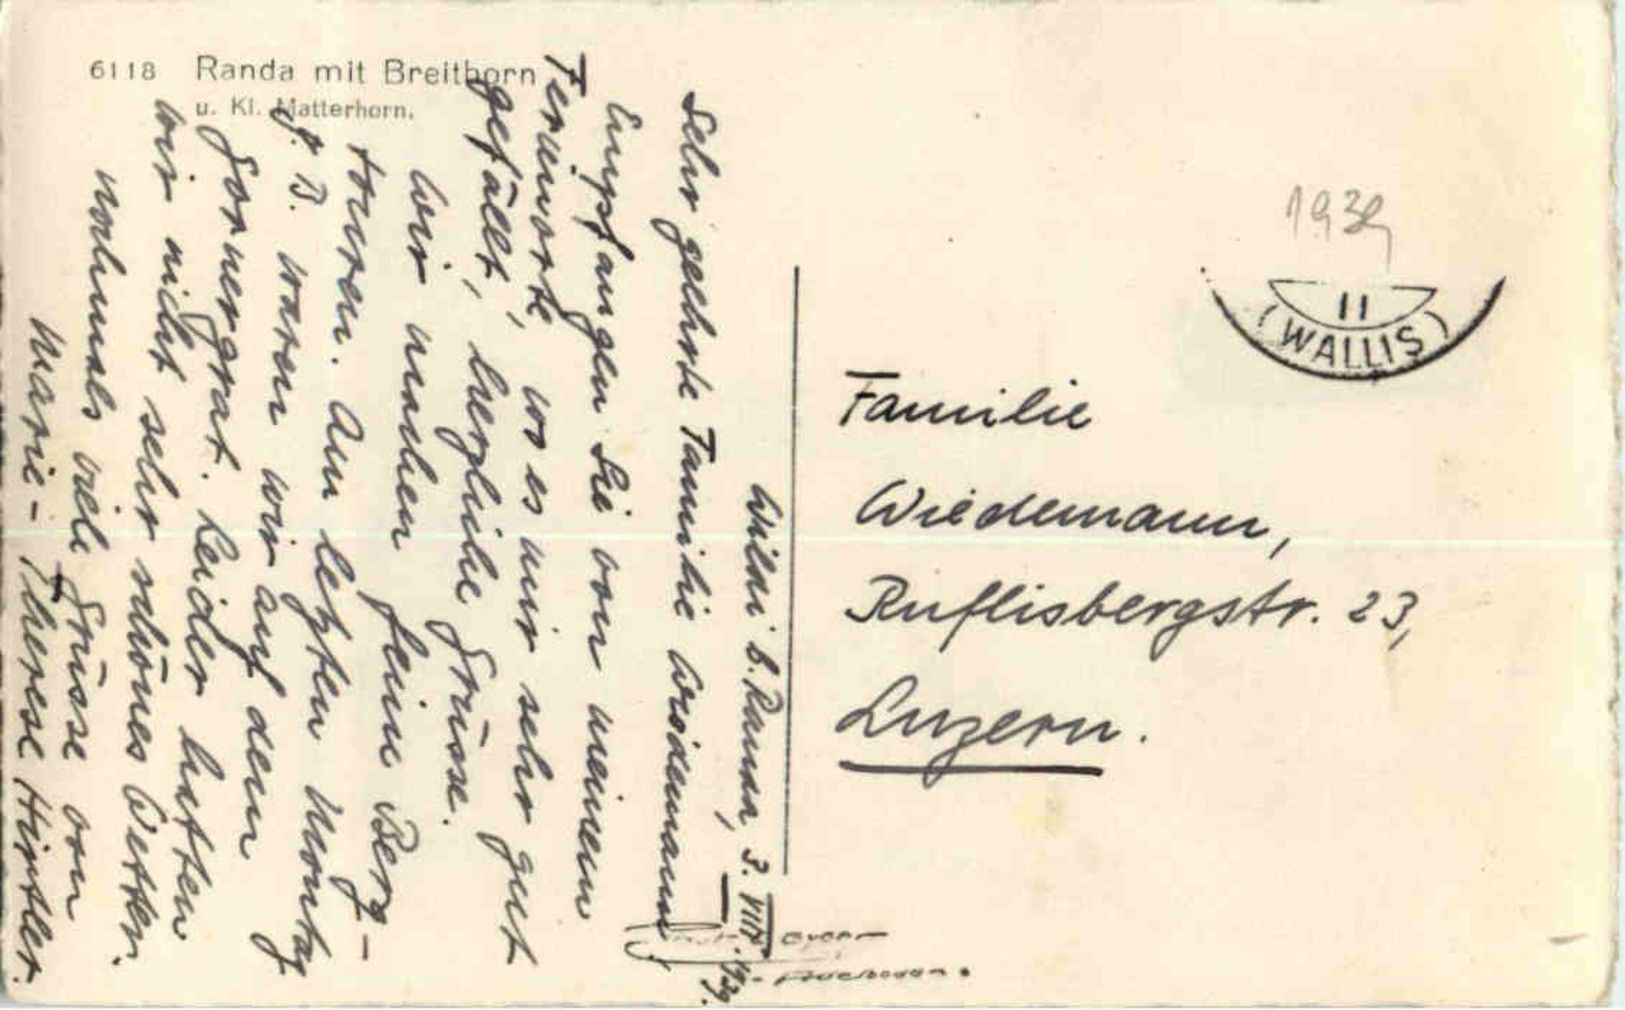 6118 Randa mit Breithorn
u. Kl. Matterhorn.
Wildi b. Randa, 3. VIII. 1939.
Sehr geehrte Familie Wiedemann,
Empfangen Sie von meinem
Ferienorte, wo es mir sehr gut
gefällt, herzliche Grüsse.
Wir machen fein Berg-
touren. Am letzten Montag
z. B. waren wir auf dem
Gornergrat. Leider hatten
wir nicht sehr schönes Wetter.
nochmals viele Grüsse von
Marie-Therese Hirtler.
1939
11
(WALLIS)
Familie
Wiedemann,
Ruflisbergstr. 23,
Luzern.